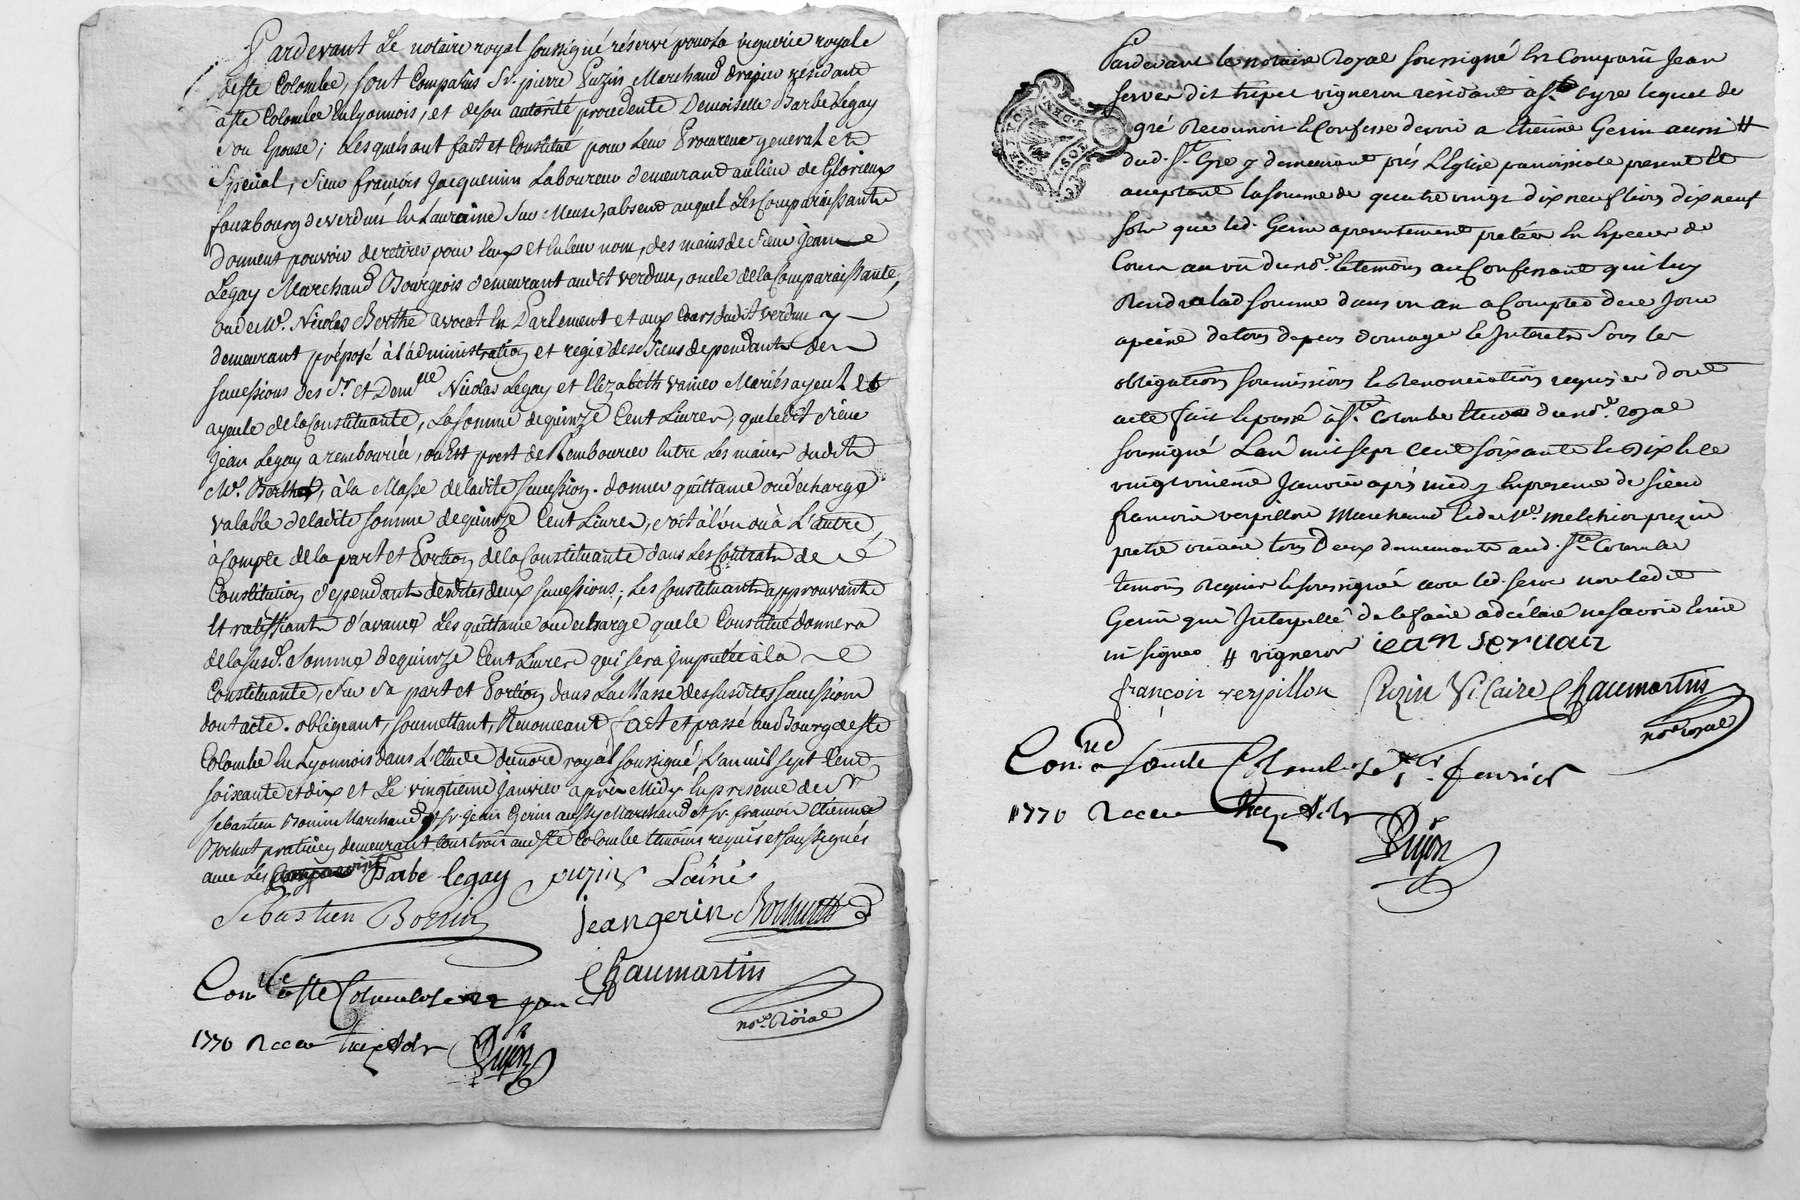 Pardevant Le notaire royal soussigné réservé pour la viguerie royale
de ste Colombe, sont Comparus Sr. pierre Puzin Marchand drapier résidant
à ste Colombe en Lyonnois, et de son autorité procedente Demoiselle Barbe Legay
son Epouse; Lesquels ont fait et Constitué pour Leur Procureur general et
Spécial, sieur françois Jacquemin Laboureur demeurand au lieu de Glorieux
fauxbourg de verdun En Lauraine Sur Meuse, absent auquel Les Comparaissants
donnent pouvoir de retirer pour Eux et en leur nom, des mains de sieur jean
Legay Marchand Bourgeois demeurant audit verdun, oncle de la Comparaissante,
ou de Mr. Nicolas Berthe avocat En Parlement et aux Cours dudit verdun y
demeurant préposé à l'administration et regie des Biens dependants des
successions des Sr. et Demlle Nicolas Legay et Elizabeth vainer Mariés ayeul et
ayeule de la Constituante, La somme de quinze Cent Livres, que ledit sieur
Jean Legay a remboursée, ou Est prest de Rembourser Entre Les mains dudit
Mr. Berthe, à la Masse de ladite succession. donner quittance ou decharge
valable de ladite somme de quinze Cent Livres, soit à l'un ou à L'autre,
à Compte de la part et Portion de la Constituante dans Les Contrats de
Constitution dependants desdites deux successions; Les Constituants approuvants
Et ratiffiants d'avance Les quittance ou decharge que le Constitué donnera
de la susd. Somme de quinze Cent Livres qui sera imputée à la
Constituante, sur sa part et Portion dans La Masse des susdites successions
dont acte. obligeant, soumettant, Renonceant fait et passé au Bourg de ste
Colombe En Lyonnois dans L'Etude du nore royal soussigné, L'an mil sept Cent
soixante et dix et Le vingtieme janvier après Midy En présence de Sr
Sebastien Bonin Marchand et Sr. jean Gerin aussy Marchand et Sr. françois Etienne
Bochut praticien demeurant tous trois audit ste Colombe temoins requis et soussignés
avec Les Comparants Barbe legay puzin L'ainé
Sebastien Bonin
jean gerin Bochutt
Chaumartin
nore. Roial
Conlé à ste Colombe le 22 janer
1770 Receu treize sols
Dijon
Pardevant le notaire Royal soussigné Est Comparu Jean
Server dit tripet vigneron residant à St. Cyre lequel de
gré Reconnoit et Confesse devoir a Etienne Gerin aussi #
dud. St. Cyre y demeurant prés L'Eglise parroissiale present Et
acceptant la somme de quatre vingt dix neuf livres dix neuf
sols que led. Gerin a presentement pretée En Especes de
Cours au vû du nore. et temoins au Confessant qui luy
Rendra lad somme dans un an a Compter de ce Jour
a peine de tous depens domage et Interets Sous les
obligations soumissions et Renonciations requises dont
acte fait et passé à Ste. Colombe Etude du nore. royal
soussigné L'an mil sept cent soixante et Dix et le
vingt unieme Janvier après midy En presence de sieur
françois verpillon Marchand et de Mre. Melchior puzin
pretre vicaire tous Deux demeurants aud. Ste Colombe
temoins Requis et soussignés avec led. Server non ledit
Gerin qui Interpellé de le faire a déclaré ne savoir Ecrire
ni signer # vigneron iean servair
françois verpillon Puzin Vicaire Chaumartin
nore royal
Conled à sainte Colombe le 1er fevrier
1770 Receu treize sols
Dijon